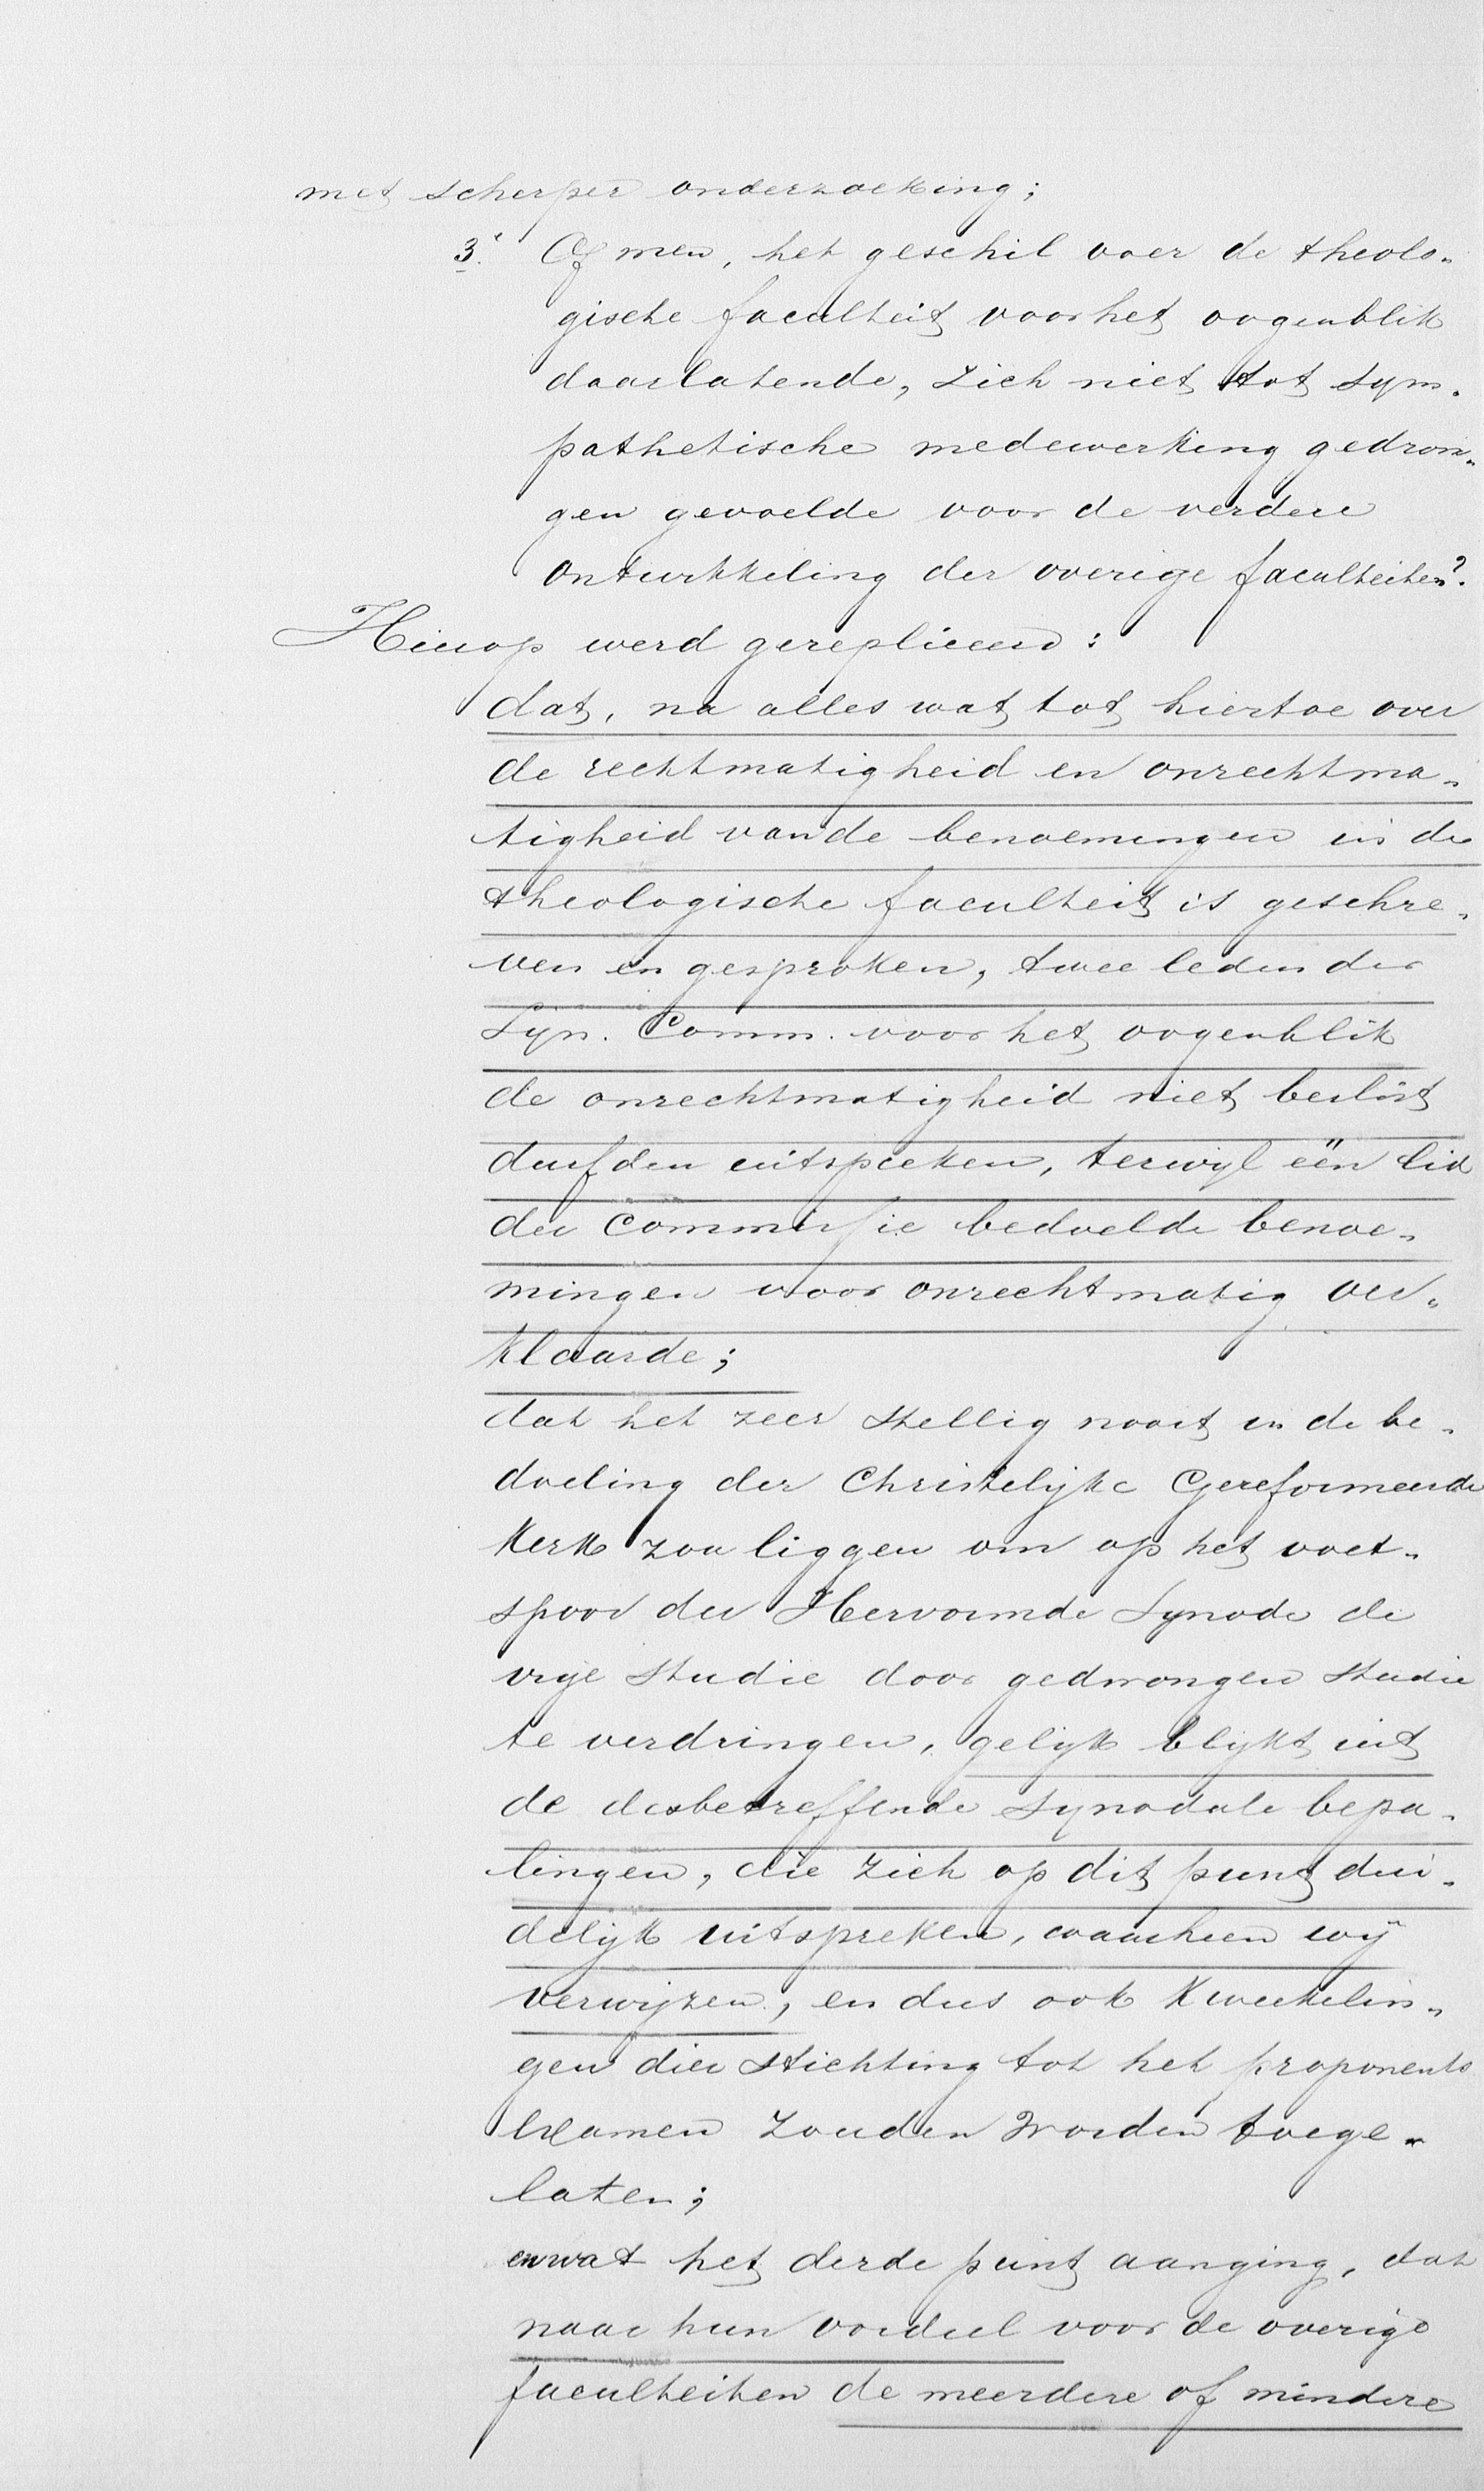 met scherper onderzoeking;
3.e Of men, het geschil voor de theolo-
gische faculteit voor het oogenblik
daarlatende, zich niet tot sym-
pathetische medewerking gedron-
gen gevoelde voor de verdere
ontwikkeling der overige faculteiten?
Hierop werd gerepliceerd:
dat, na alles wat tot hiertoe over
de rechtmatigheid en onrechtma-
tigheid van de benoemingen in de
theologische faculteit is geschre-
ven en gesproken, twee leden der
Syn. Comm. voor het oogenblik
de onrechtmatigheid niet beslist
durfden uitspreken, terwijl één lid
der Commissie bedoelde benoe-
mingen voor onrechtmatig ver-
klaarde;
dat het zeer stellig nooit in de be-
doeling der Christelijke Gereformeerde
Kerk zou liggen om op het voet-
spoor der Hervormde Synode de
vrije studie door gedwongen studie
te verdringen, gelijk blijkt uit
de desbetreffende Synodale bepa-
lingen, die zich op dit punt dui-
delijk uitspreken, waarheen wij
verwijzen, en dus ook kweekelin-
gen dier Stichting tot het proponents
Examen zouden worden toege-
laten;
en wat het derde punt aanging, dat
naar hun oordeel voor de overige
faculteiten de meerdere of mindere